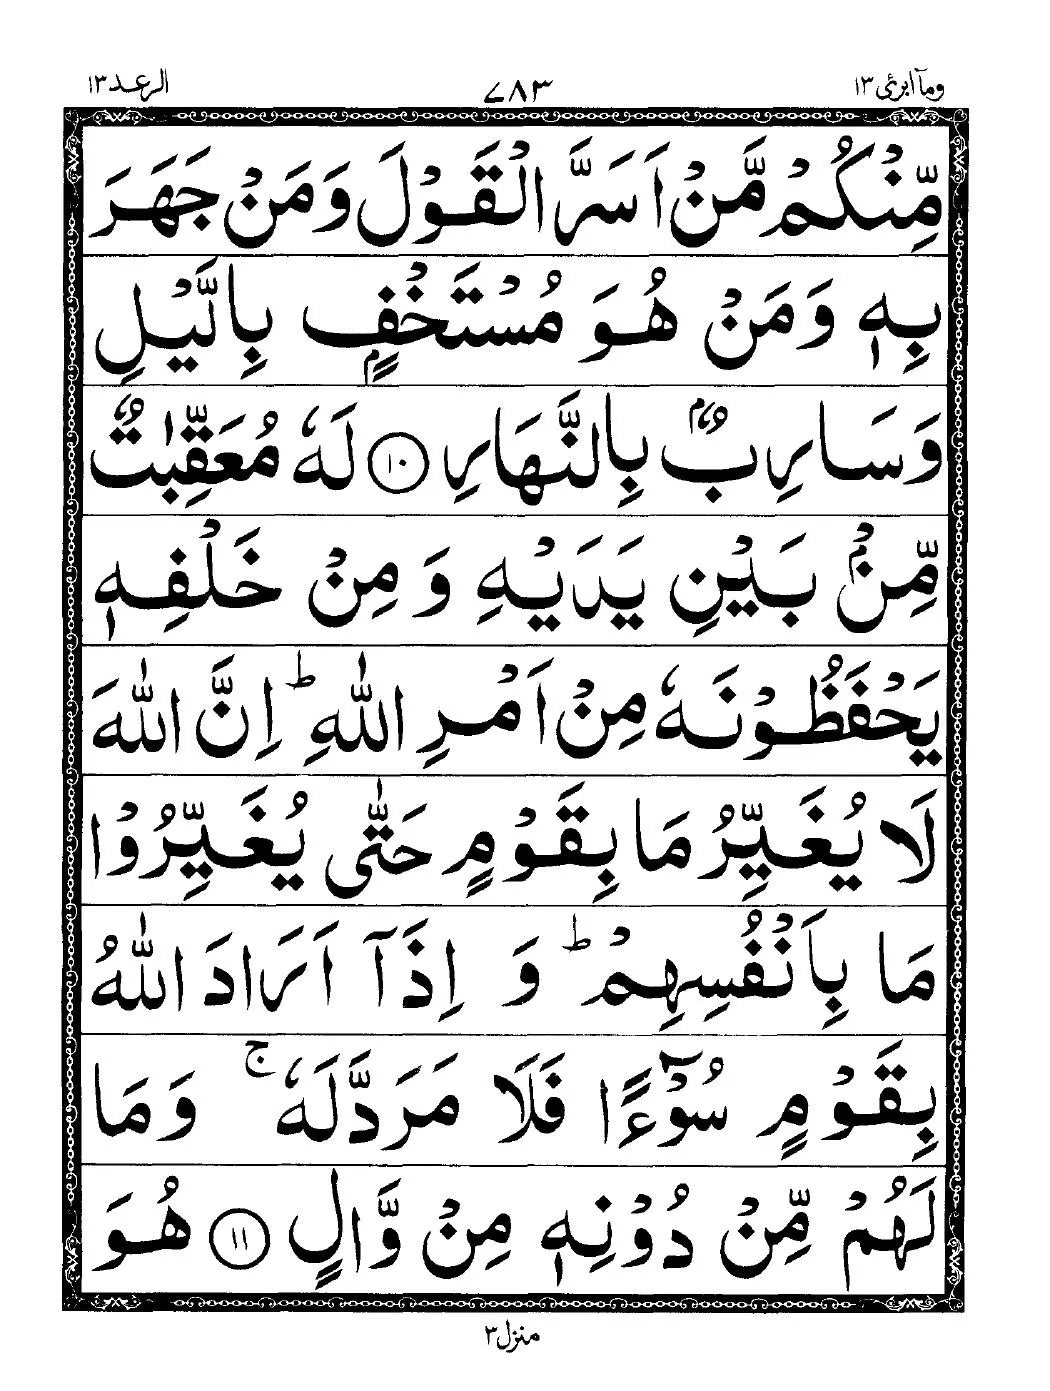 ومآ ابرئ ١٣ ٧٨٣ الرعد ١٣
مِّنۡكُمۡ مَّنۡ اَسَرَّ الۡقَوۡلَ وَمَنۡ جَهَرَ
بِهٖ وَمَنۡ هُوَ مُسۡتَخۡفٍۢ بِالَّيۡلِ
وَسَارِبٌۢ بِالنَّهَارِ ﴿۱۰﴾ لَهٗ مُعَقِّبٰتٌ
مِّنۡۢ بَيۡنِ يَدَيۡهِ وَمِنۡ خَلۡفِهٖ
يَحۡفَظُوۡنَهٗ مِنۡ اَمۡرِ اللّٰهِ‌ؕ اِنَّ اللّٰهَ
لَا يُغَيِّرُ مَا بِقَوۡمٍ حَتّٰى يُغَيِّرُوۡا
مَا بِاَنۡفُسِهِمۡ‌ؕ وَاِذَاۤ اَرَادَ اللّٰهُ
بِقَوۡمٍ سُوۡۤءًا فَلَا مَرَدَّ لَهٗ‌ۚ وَمَا
لَهُمۡ مِّنۡ دُوۡنِهٖ مِنۡ وَّالٍ ﴿۱۱﴾ هُوَ
منزل ٣